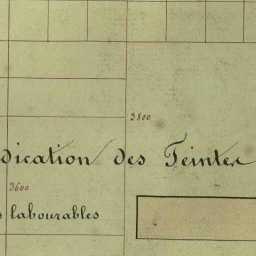 3800
dication des Teintes
3600
s labourables